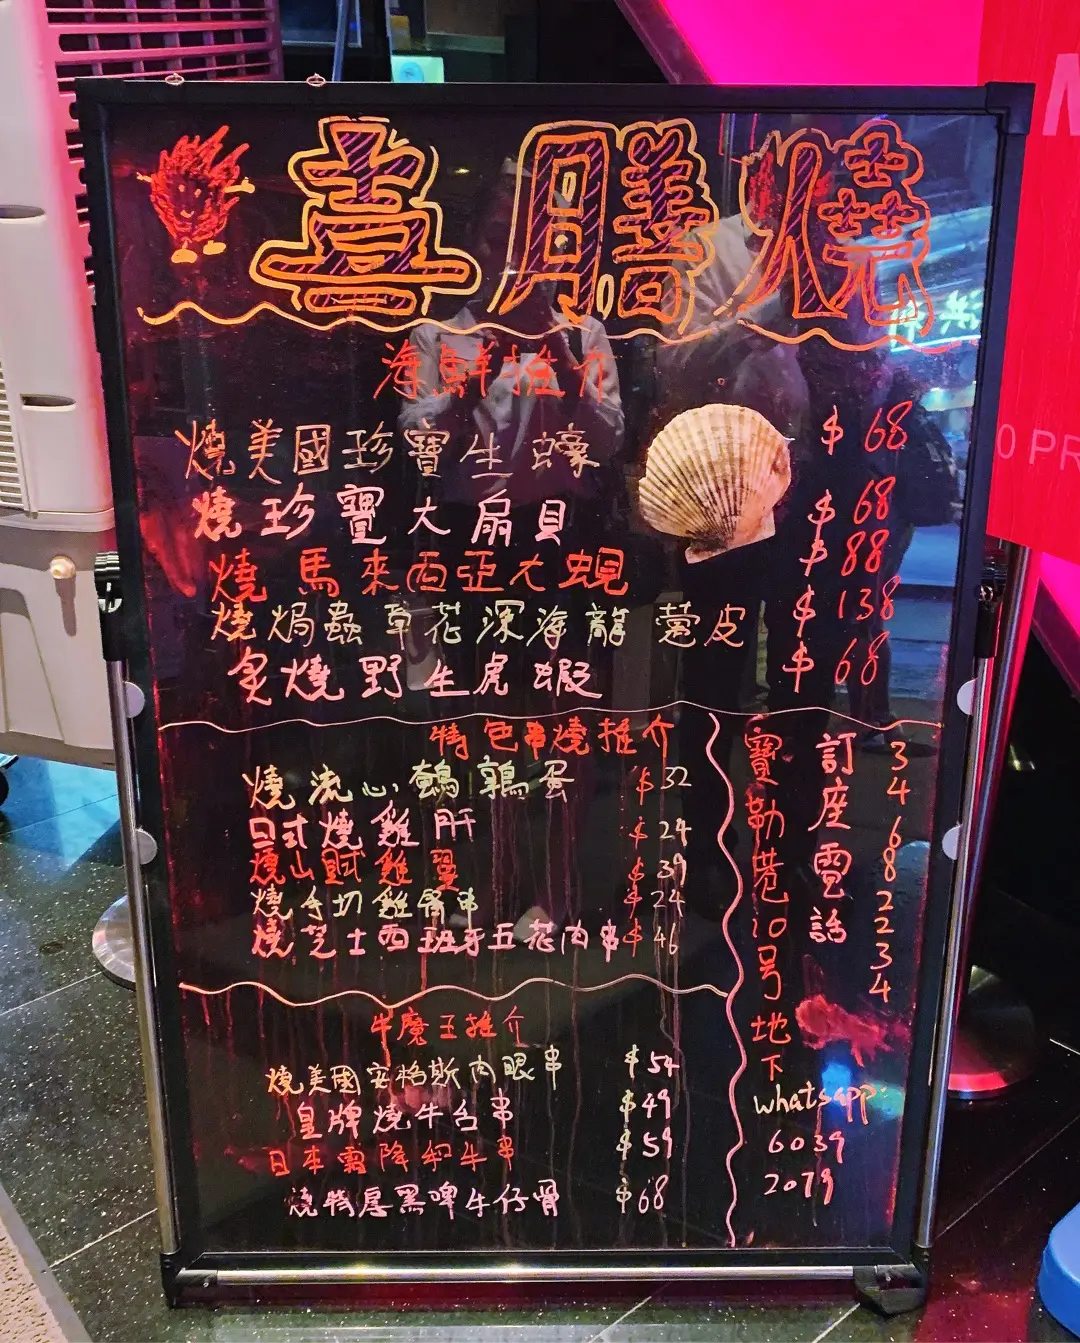 喜膳燒
海鮮推介
燒美國珍寶生蠔 $68
燒珍寶大扇貝 $68
燒馬來西亞大蜆 $88
燒焗蟲草花深海龍躉皮 $138
炙燒野生虎蝦 $68
特色串燒推介
燒流心鵪鶉蛋 $32
日式燒雞肝 $24
燒山賊雞翼 $39
燒手切雞腎串 $24
燒芝士西班牙五花肉串 $46
牛魔王推介
燒美國安格斯肉眼串 $54
皇牌燒牛舌串 $49
日本霜降和牛串 $59
燒特厚黑啤牛仔骨 $68
寶勒巷10号地下
訂座電話
34682234
whatsapp:
6039
2079
M
0 PR